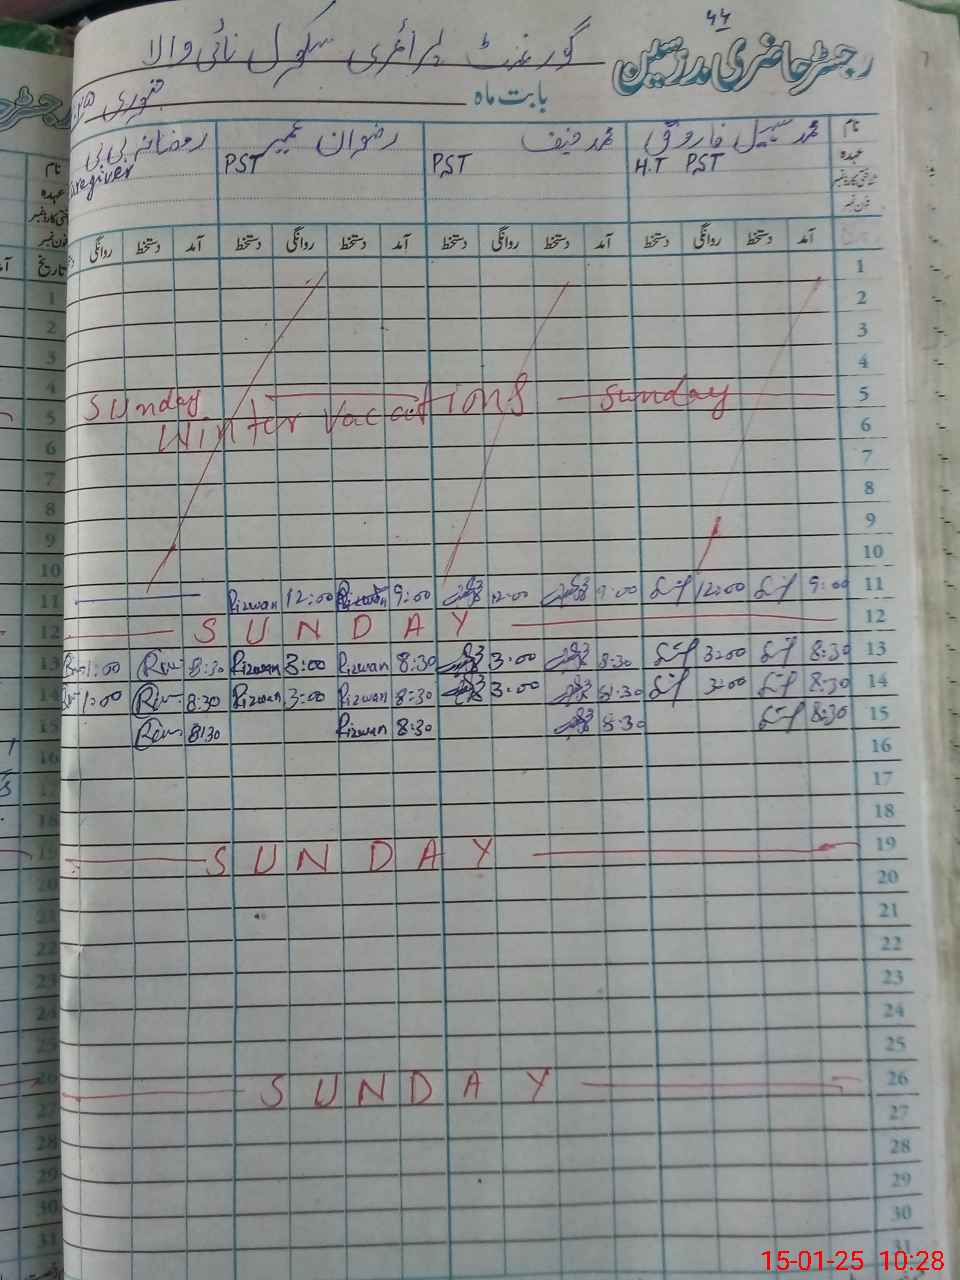 ۴۴
رجسٹر حاضری مدرسین
گورنمنٹ پرائمری سکول نائی والا
بابت ماہ جنوری
نام محمد سہیل فاروق محمد حنیف رضوان عمیر رمضانہ بی بی
عہدہ H.T PST PST PST Caregiver
شناختی کارڈ نمبر
فون نمبر
آمد دستخط روانگی دستخط آمد دستخط روانگی دستخط آمد دستخط روانگی دستخط آمد دستخط روانگی
1
2
3
4
Sunday Sunday 5
Winter Vacations 6
7
8
9
10
Rizwan 12:00 Rizwan 9:00 12:00 9:00 12:00 9:00 11
S U N D A Y 12
1:00 8:30 Rizwan 3:00 Rizwan 8:30 3:00 8:30 3:00 8:30 13
1:00 8:30 Rizwan 3:00 Rizwan 8:30 3:00 8:30 3:00 8:30 14
8:30 Rizwan 8:30 8:30 8:30 15
16
17
18
S U N D A Y 19
20
21
22
23
24
25
S U N D A Y 26
27
28
29
30
31
15-01-25 10:28